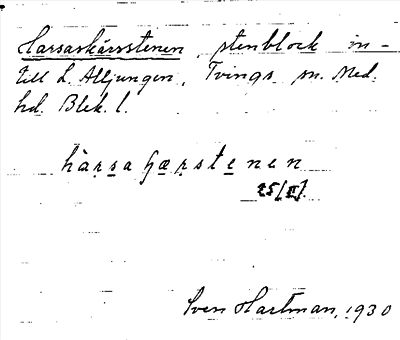 Harsarkärrstenen, stenblock in-
till L. Alljungen, Tvings sn. Med.
hd. Blek. l.
hàrsa ɧærstenen
25/II
Sven Hartman, 1930